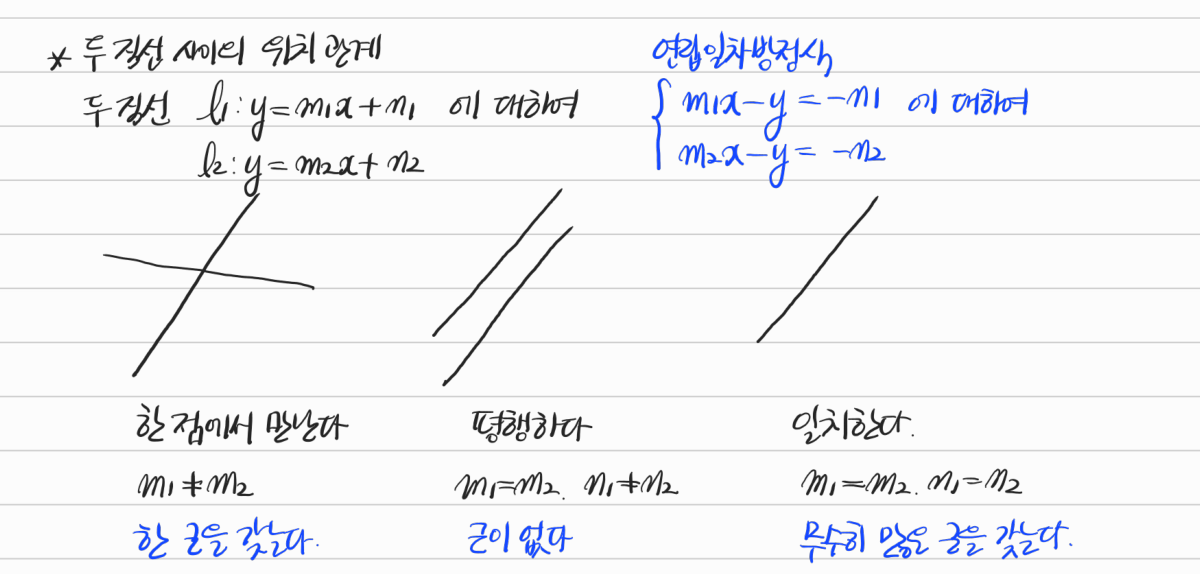 * 두 직선 사이의 위치 관계
두 직선 l₁: y=m₁x+n₁ 에 대하여
l₂: y=m₂x+n₂
연립일차방정식
{ m₁x-y=-n₁ 에 대하여
m₂x-y=-n₂
한 점에서 만난다
m₁≠m₂
한 근을 갖는다.
평행하다
m₁=m₂. n₁≠n₂
근이 없다
일치한다.
m₁=m₂. n₁=n₂
무수히 많은 근을 갖는다.